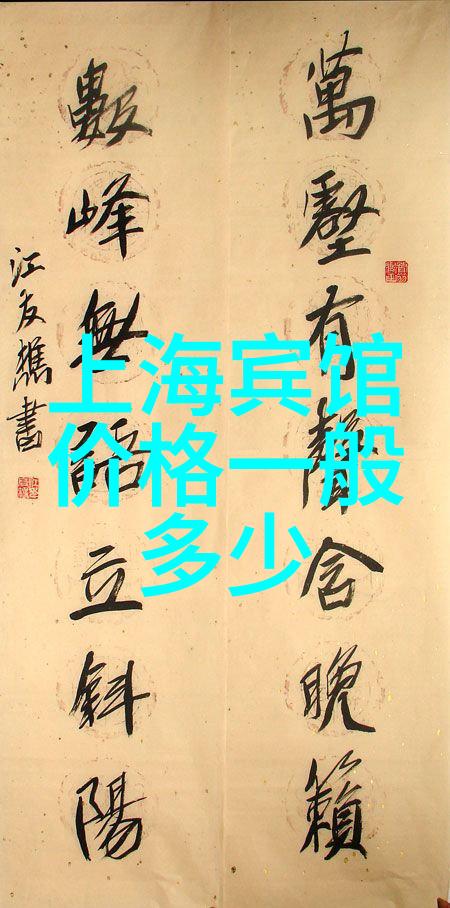 萬壑有聲含晚籟
數峰無語立斜陽
江友樵書
上海宾馆
价格一般
多少